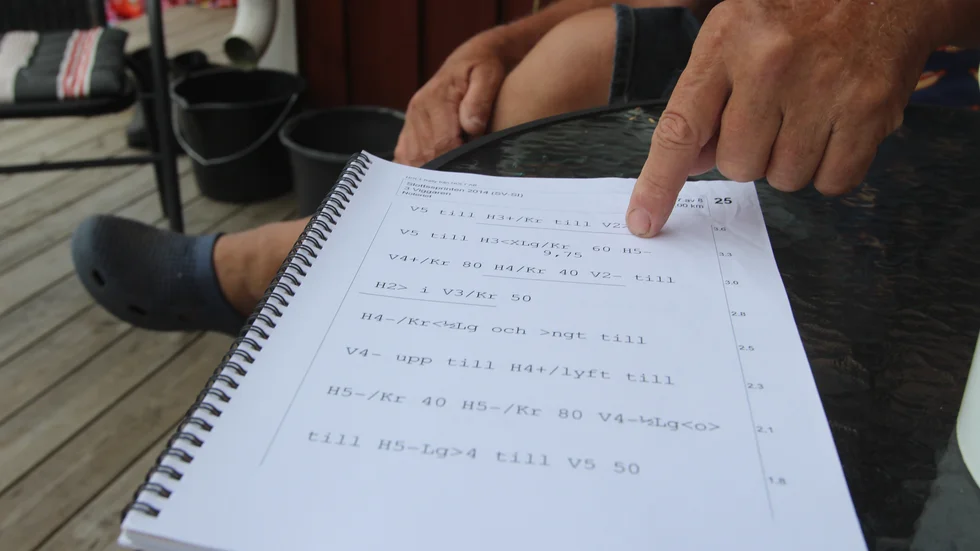 Slottssprinten 2014 (SV-SI)
3 Viggaren
Roland
av 8
00 km
25
V5 till H3+/Kr till V2>
3.6
V5 till H3<XLg/Kr 60 H5-
9,75
3.3
V4+/Kr 80 H4/Kr 40 V2- till
3.0
H2> i V3/Kr 50
2.8
H4-/Kr<½Lg och >ngt till
2.5
V4- upp till H4+/lyft till
2.3
H5-/Kr 40 H5-/Kr 80 V4-½Lg<o>
2.1
till H5-Lg>4 till V5 50
1.8